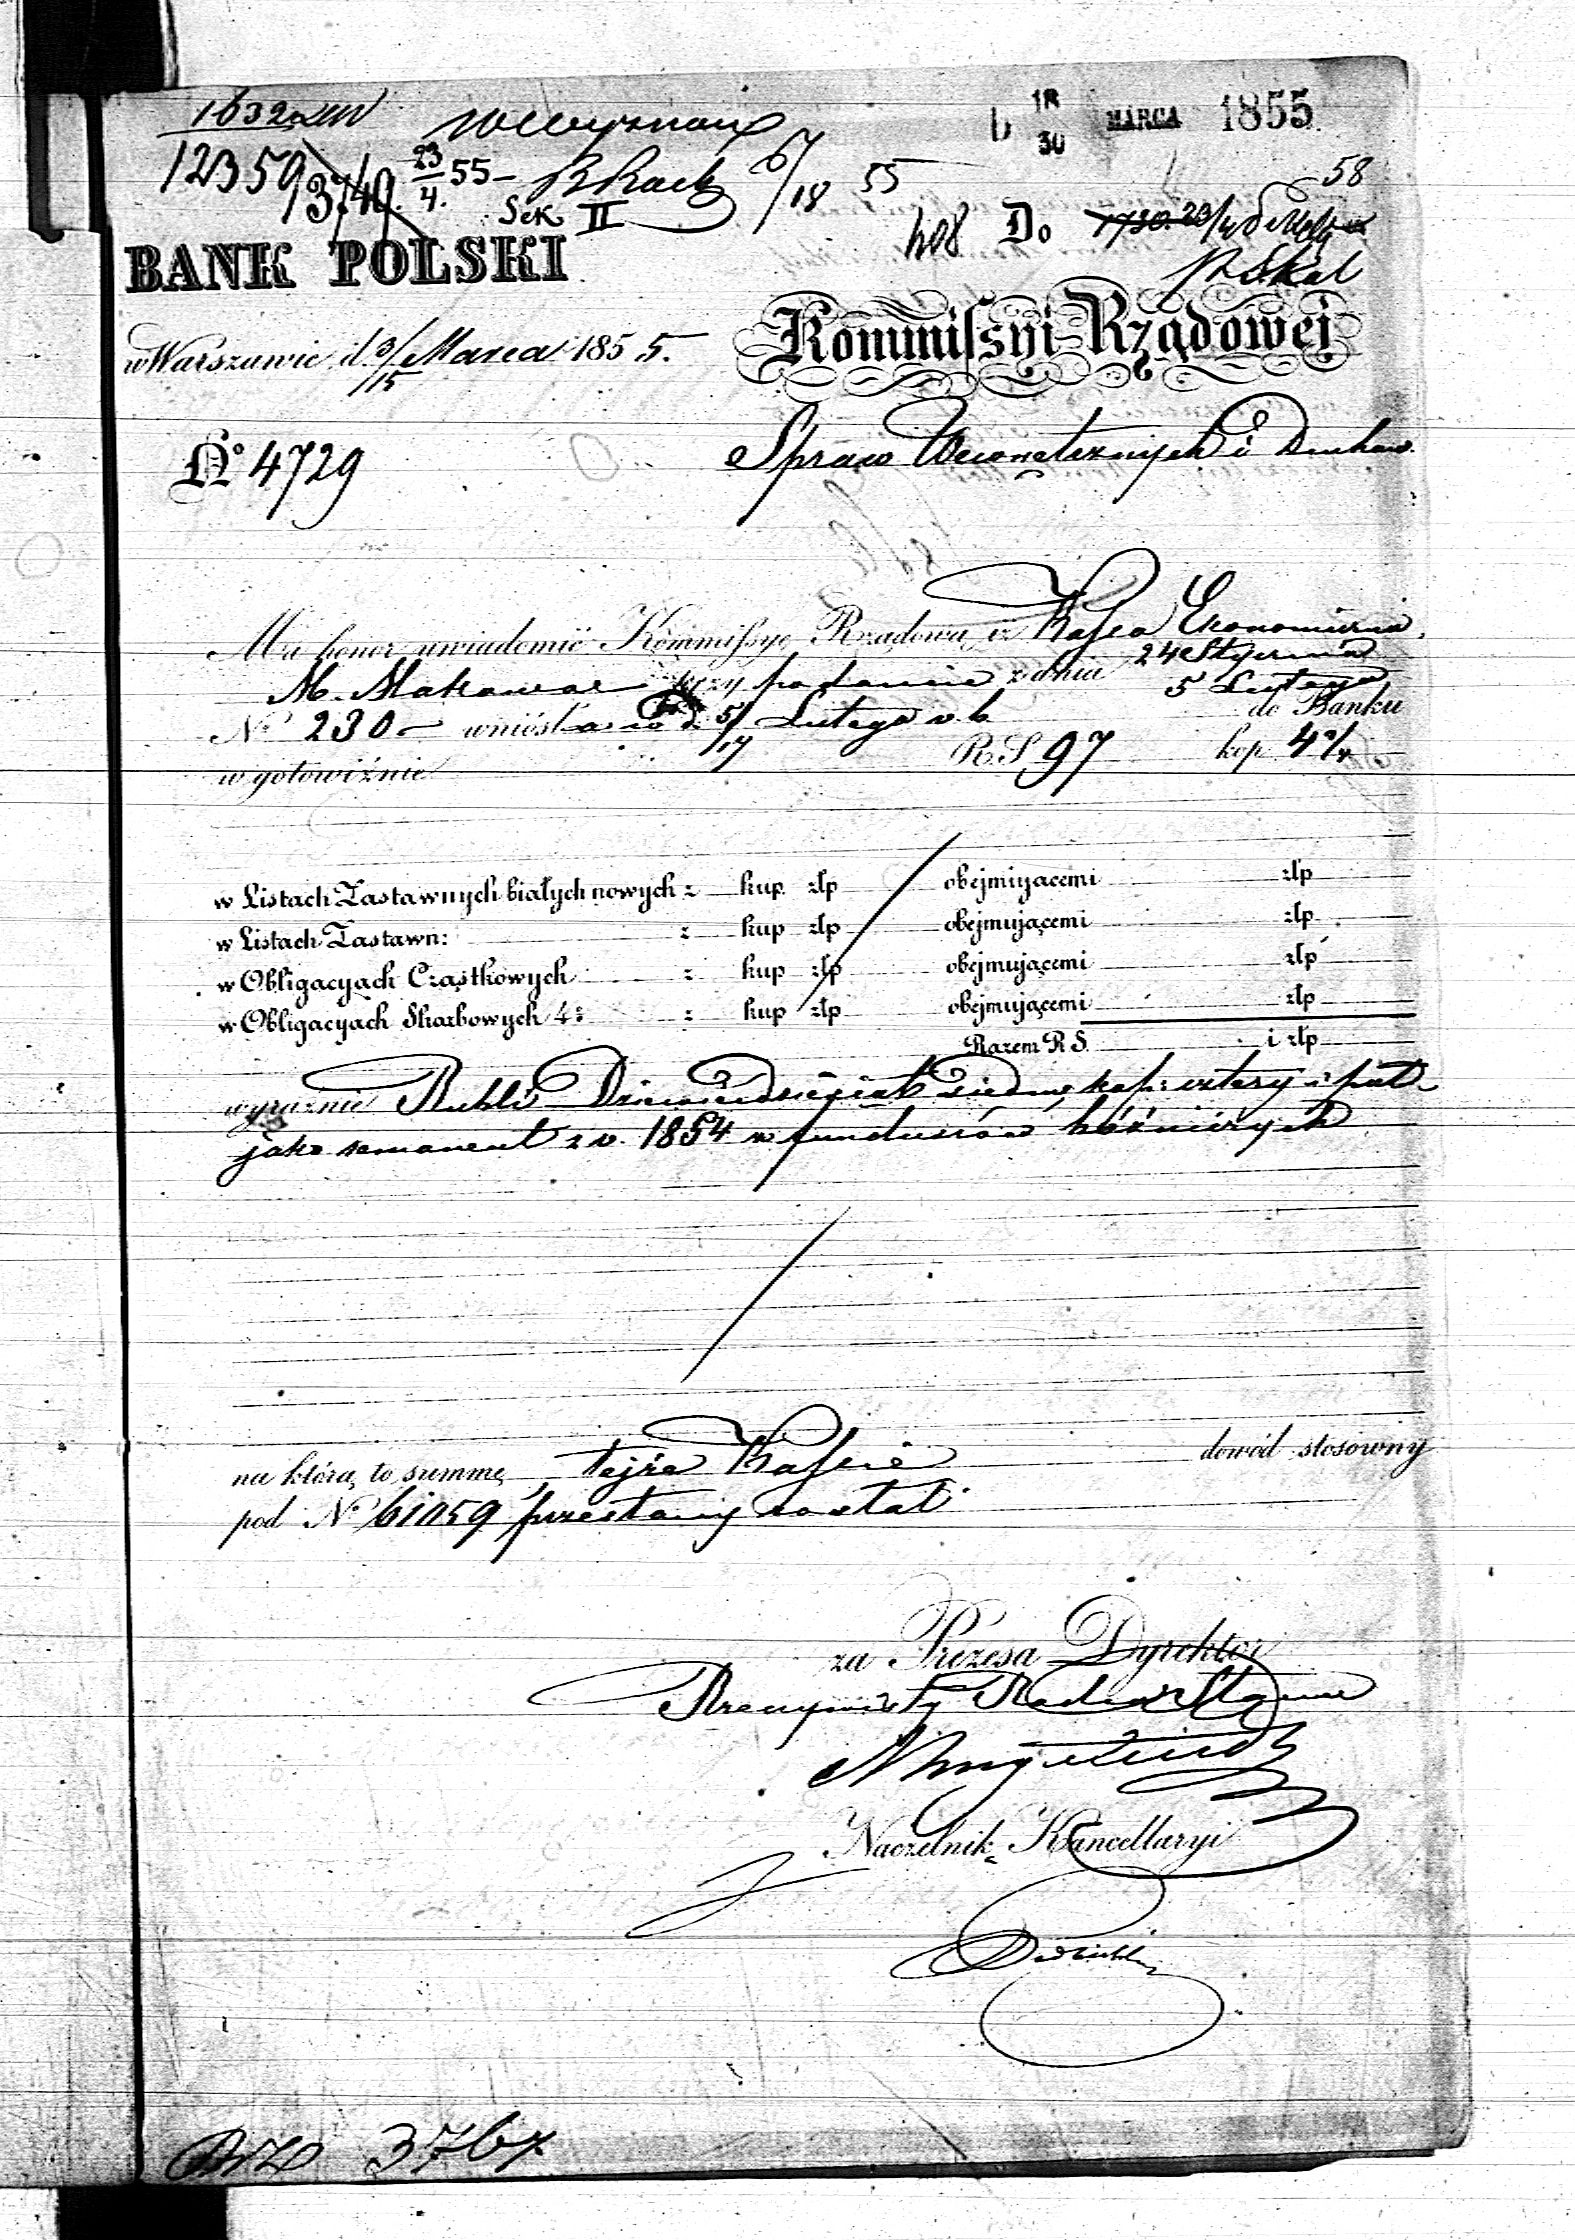 1632
Wwyznań
D 18/30 MARCA 1855
12359 3740. 23/4. 55 6/18 55
58
Sek II
408 Do
BANK POLSKI
Kommissyi Rządowej
w Warszawie d. 3/15 Marca 1855.
Spraw Wewnętrznych i Duchow.
No 4729
Ma honor uwiadomić Kommissyę Rządową iż Kassa Ekonomiczna
M. Makowa przy podaniu z dnia 24 Stycznia / 5 Lutego
No 230 wniosła w d. 5/17 Lutego r. b. do Banku
w gotowiźnie R.S. 97 kop 4½
w Listach Zastawnych białych nowych z kup. złp obejmującemi złp
w Listach Zastawn: z kup złp obejmującemi złp
w Obligacyach Cząstkowych z kup złp obejmującemi złp
w Obligacyach Skarbowych 4% z kup złp obejmującemi złp
Razem R S. i złp
wyraźnie Rubli Dziewiędziesiąt siedm, kop: cztery i pół
jako remanent z r. 1854 z funduszów bóźniczych
na którą to summę tejże Kassie dowód stosowny
pod No 61059 przesłany został
za Prezesa Dyrektor
Rzeczywisty Radca Stanu
Naczelnik Kancellaryi
3767